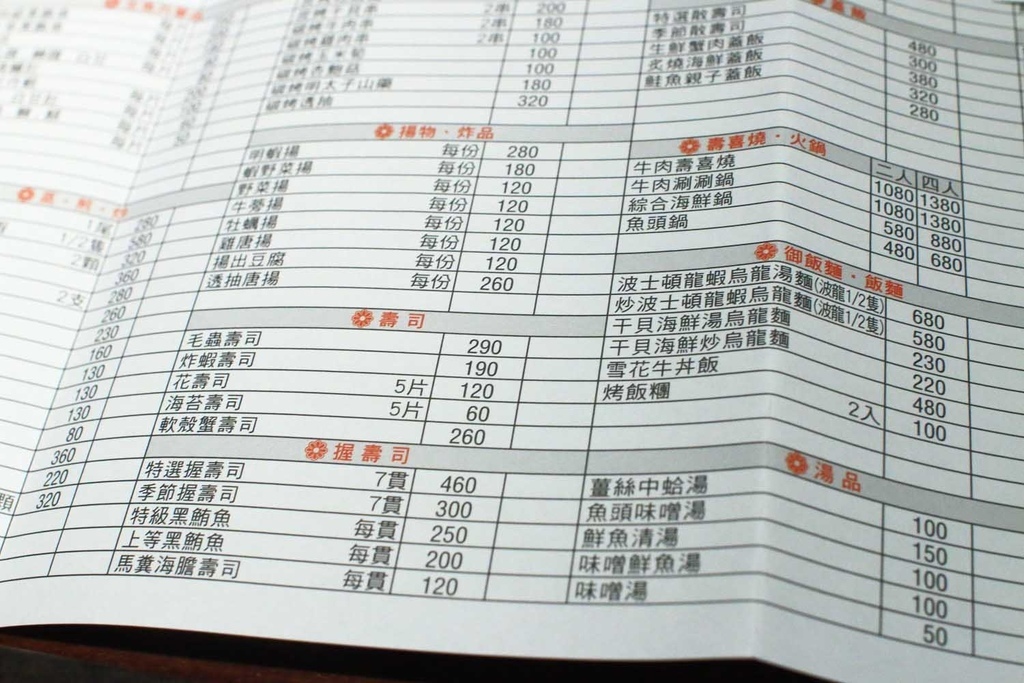 2串 200
2串 180
2串 100
100
100
碳烤明太子山藥 180
碳烤透抽 320
揚物、炸品
明蝦揚 每份 280
蝦野菜揚 每份 180
野菜揚 每份 120
牛蒡揚 每份 120
牡蠣揚 每份 120
雞唐揚 每份 120
揚出豆腐 每份 260
透抽唐揚
壽司
毛蟲壽司 290
炸蝦壽司 190
花壽司 5片 120
海苔壽司 5片 60
軟殼蟹壽司 260
握壽司
特選握壽司 7貫 460
季節握壽司 7貫 300
特級黑鮪魚 每貫 250
上等黑鮪魚 每貫 200
馬糞海膽壽司 每貫 120
特選散壽司 480
季節散壽司 300
生鮮蟹肉蓋飯 380
炙燒海鮮蓋飯 320
鮭魚親子蓋飯 280
壽喜燒·火鍋
二人 四人
牛肉壽喜燒 1080 1380
牛肉涮涮鍋 1080 1380
綜合海鮮鍋 580 880
魚頭鍋 480 680
御飯麵·飯麵
波士頓龍蝦烏龍湯麵(波龍1/2隻) 680
炒波士頓龍蝦烏龍麵(波龍1/2隻) 580
干貝海鮮湯烏龍麵 230
干貝海鮮炒烏龍麵 220
雪花牛丼飯 480
烤飯糰 2入 100
湯品
薑絲中蛤湯 100
魚頭味噌湯 150
鮮魚清湯 100
味噌鮮魚湯 100
味噌湯 50
1尾 280
1/2隻 580
2顆 320
360
2支 280
260
230
160
130
130
130
80
360
220
顆 320